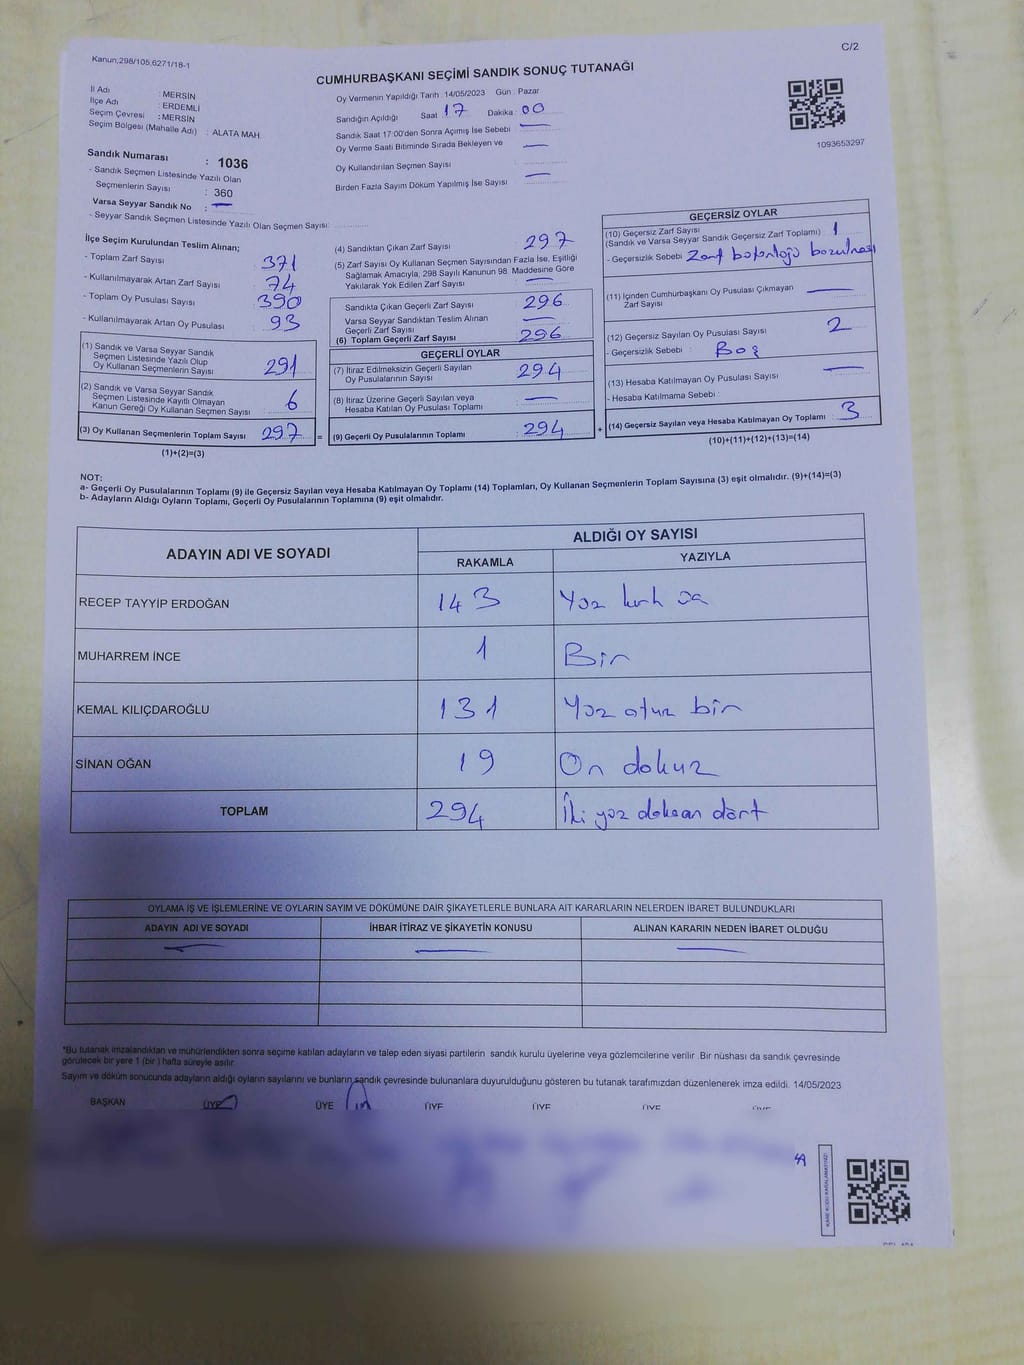 Kanun,298/105,6271/18-1
C/2
CUMHURBAŞKANI SEÇİMİ SANDIK SONUÇ TUTANAĞI
İl Adı : MERSİN
İlçe Adı : ERDEMLİ
Seçim Çevresi : MERSİN
Seçim Bölgesi (Mahalle Adı) : ALATA MAH.
Oy Vermenin Yapıldığı Tarih : 14/05/2023 Gün : Pazar
Sandığın Açıldığı Saat 17 Dakika : 00
Sandık Saat 17:00'den Sonra Açımış İse Sebebi —
Oy Verme Saati Bitiminde Sırada Bekleyen ve —
Oy Kullandırılan Seçmen Sayısı
Birden Fazla Sayım Döküm Yapılmış İse Sayısı —
1093653297
Sandık Numarası : 1036
- Sandık Seçmen Listesinde Yazılı Olan
Seçmenlerin Sayısı : 360
Varsa Seyyar Sandık No : —
- Seyyar Sandık Seçmen Listesinde Yazılı Olan Seçmen Sayısı:
İlçe Seçim Kurulundan Teslim Alınan;
- Toplam Zarf Sayısı 371
- Kullanılmayarak Artan Zarf Sayısı : 74
- Toplam Oy Pusulası Sayısı 390
- Kullanılmayarak Artan Oy Pusulası : 93
(1) Sandık ve Varsa Seyyar Sandık
Seçmen Listesinde Yazılı Olup
Oy Kullanan Seçmenlerin Sayısı 291
(2) Sandık ve Varsa Seyyar Sandık
Seçmen Listesinde Kayıtlı Olmayan
Kanun Gereği Oy Kullanan Seçmen Sayısı 6
(3) Oy Kullanan Seçmenlerin Toplam Sayısı 297 =
(1)+(2)=(3)
(4) Sandıktan Çıkan Zarf Sayısı 297
(5) Zarf Sayısı Oy Kullanan Seçmen Sayısından Fazla İse, Eşitliği
Sağlamak Amacıyla, 298 Sayılı Kanunun 98. Maddesine Göre
Yakılarak Yok Edilen Zarf Sayısı : —
Sandıkta Çıkan Geçerli Zarf Sayısı : 296
Varsa Seyyar Sandıktan Teslim Alınan
Geçerli Zarf Sayısı —
(6) Toplam Geçerli Zarf Sayısı : 296
GEÇERLİ OYLAR
(7) İtiraz Edilmeksizin Geçerli Sayılan
Oy Pusulalarının Sayısı : 294
(8) İtiraz Üzerine Geçerli Sayılan veya
Hesaba Katılan Oy Pusulası Toplamı : —
(9) Geçerli Oy Pusulalarının Toplamı : 294 +
GEÇERSİZ OYLAR
(10) Geçersiz Zarf Sayısı
(Sandık ve Varsa Seyyar Sandık Geçersiz Zarf Toplamı) : 1
- Geçersizlik Sebebi Zarf bütünlüğü bozulması
(11) İçinden Cumhurbaşkanı Oy Pusulası Çıkmayan
Zarf Sayısı —
(12) Geçersiz Sayılan Oy Pusulası Sayısı : 2
- Geçersizlik Sebebi : Boş
(13) Hesaba Katılmayan Oy Pusulası Sayısı : —
- Hesaba Katılmama Sebebi :
(14) Geçersiz Sayılan veya Hesaba Katılmayan Oy Toplamı : 3
(10)+(11)+(12)+(13)=(14)
NOT:
a- Geçerli Oy Pusulalarının Toplamı (9) ile Geçersiz Sayılan veya Hesaba Katılmayan Oy Toplamı (14) Toplamları, Oy Kullanan Seçmenlerin Toplam Sayısına (3) eşit olmalıdır. (9)+(14)=(3)
b- Adayların Aldığı Oyların Toplamı, Geçerli Oy Pusulalarının Toplamına (9) eşit olmalıdır.
ADAYIN ADI VE SOYADI ALDIĞI OY SAYISI
RAKAMLA YAZIYLA
RECEP TAYYİP ERDOĞAN 143 Yüz kırk üç
MUHARREM İNCE 1 Bir
KEMAL KILIÇDAROĞLU 131 Yüz otuz bir
SİNAN OĞAN 19 On dokuz
TOPLAM 294 İki yüz doksan dört
OYLAMA İŞ VE İŞLEMLERİNE VE OYLARIN SAYIM VE DÖKÜMÜNE DAİR ŞİKAYETLERLE BUNLARA AİT KARARLARIN NELERDEN İBARET BULUNDUKLARI
ADAYIN ADI VE SOYADI İHBAR İTİRAZ VE ŞİKAYETİN KONUSU ALINAN KARARIN NEDEN İBARET OLDUĞU
— — —
*Bu tutanak imzalandıktan ve mühürlendikten sonra seçime katılan adayların ve talep eden siyasi partilerin sandık kurulu üyelerine veya gözlemcilerine verilir. Bir nüshası da sandık çevresinde
görülecek bir yere 1 (bir) hafta süreyle asılır.
Sayım ve döküm sonucunda adayların aldığı oyların sayılarını ve bunların sandık çevresinde bulunanlara duyurulduğunu gösteren bu tutanak tarafımızdan düzenlenerek imza edildi. 14/05/2023
BAŞKAN ÜYE ÜYE ÜYE ÜYE ÜYE ÜYE